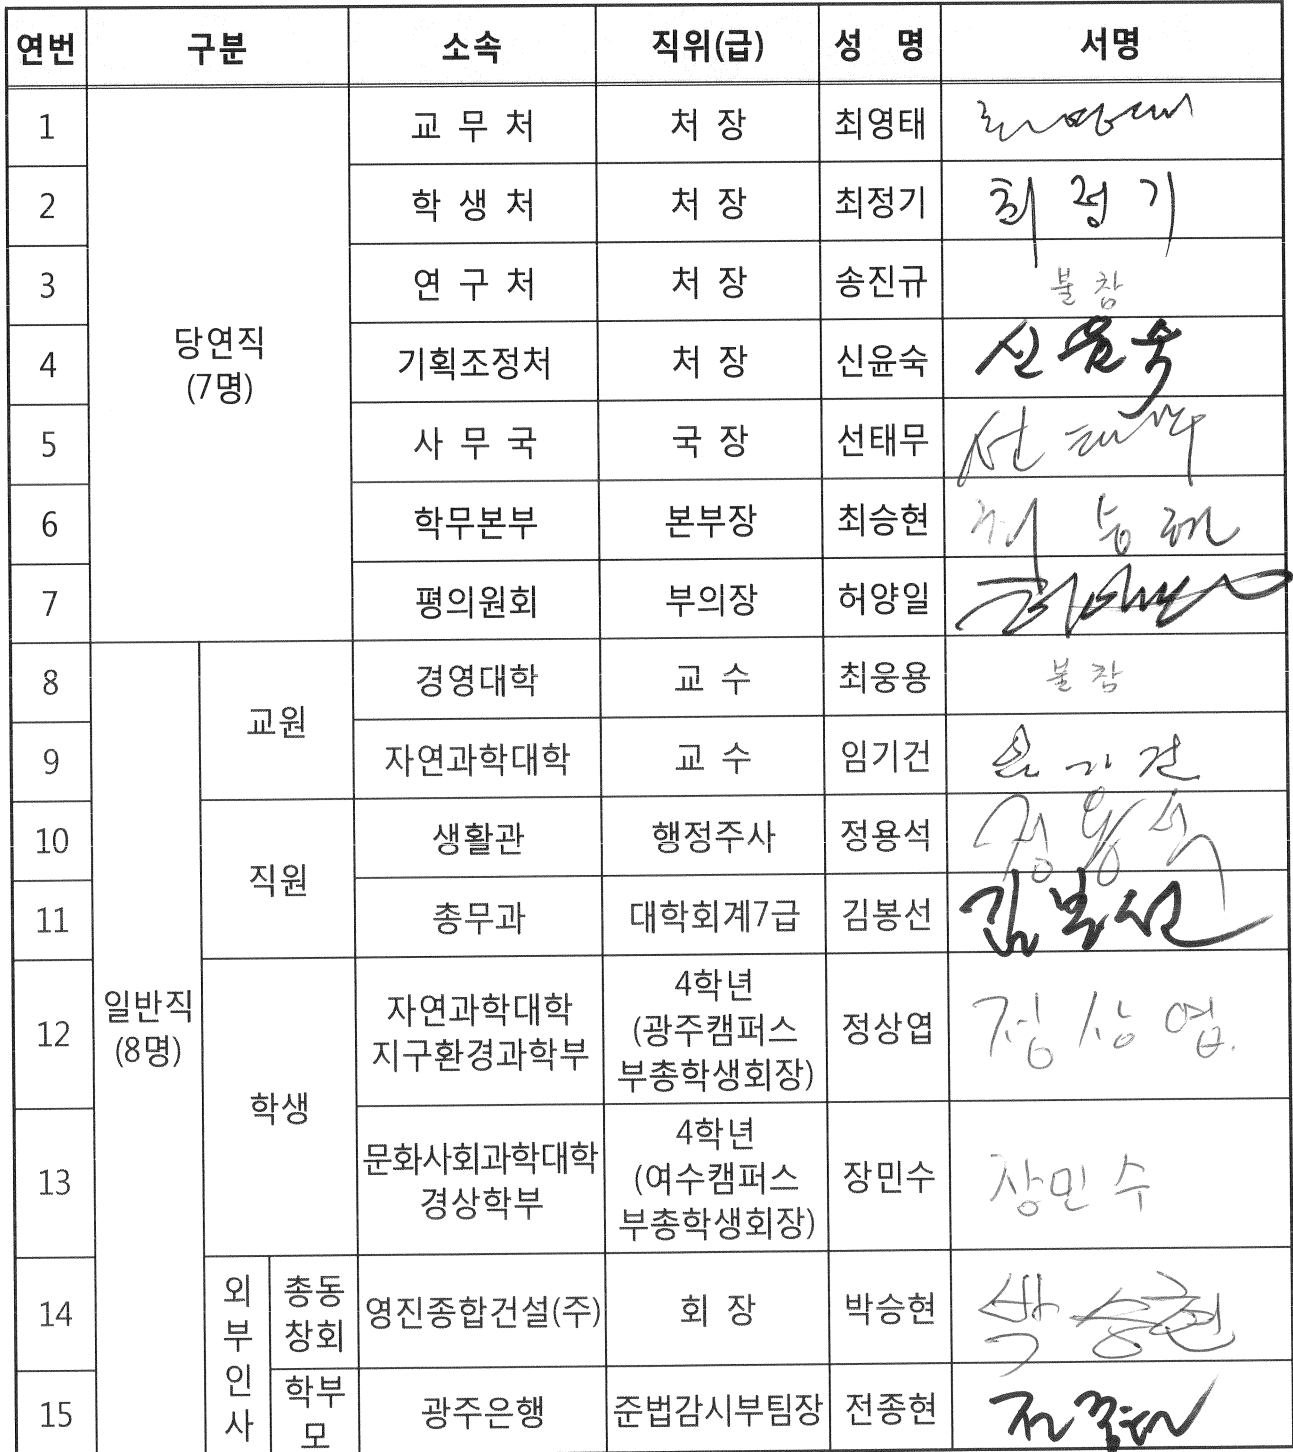 연번 구분 소속 직위(급) 성 명 서명
1 당연직 (7명) 교 무 처 처 장 최영태 최영태
2 학 생 처 처 장 최정기 최정기
3 연 구 처 처 장 송진규 불참
4 기획조정처 처 장 신윤숙 신윤숙
5 사 무 국 국 장 선태무 선태무
6 학무본부 본부장 최승현 최승현
7 평의원회 부의장 허양일
8 일반직 (8명) 교원 경영대학 교 수 최웅용 불참
9 자연과학대학 교 수 임기건 임기건
10 직원 생활관 행정주사 정용석 정용석
11 총무과 대학회계7급 김봉선 김봉선
12 학생 자연과학대학 지구환경과학부 4학년 (광주캠퍼스 부총학생회장) 정상엽 정상엽.
13 문화사회과학대학 경상학부 4학년 (여수캠퍼스 부총학생회장) 장민수 장민수
14 외부인사 총동창회 영진종합건설(주) 회 장 박승현 박승현
15 학부모 광주은행 준법감시부팀장 전종현 전종현